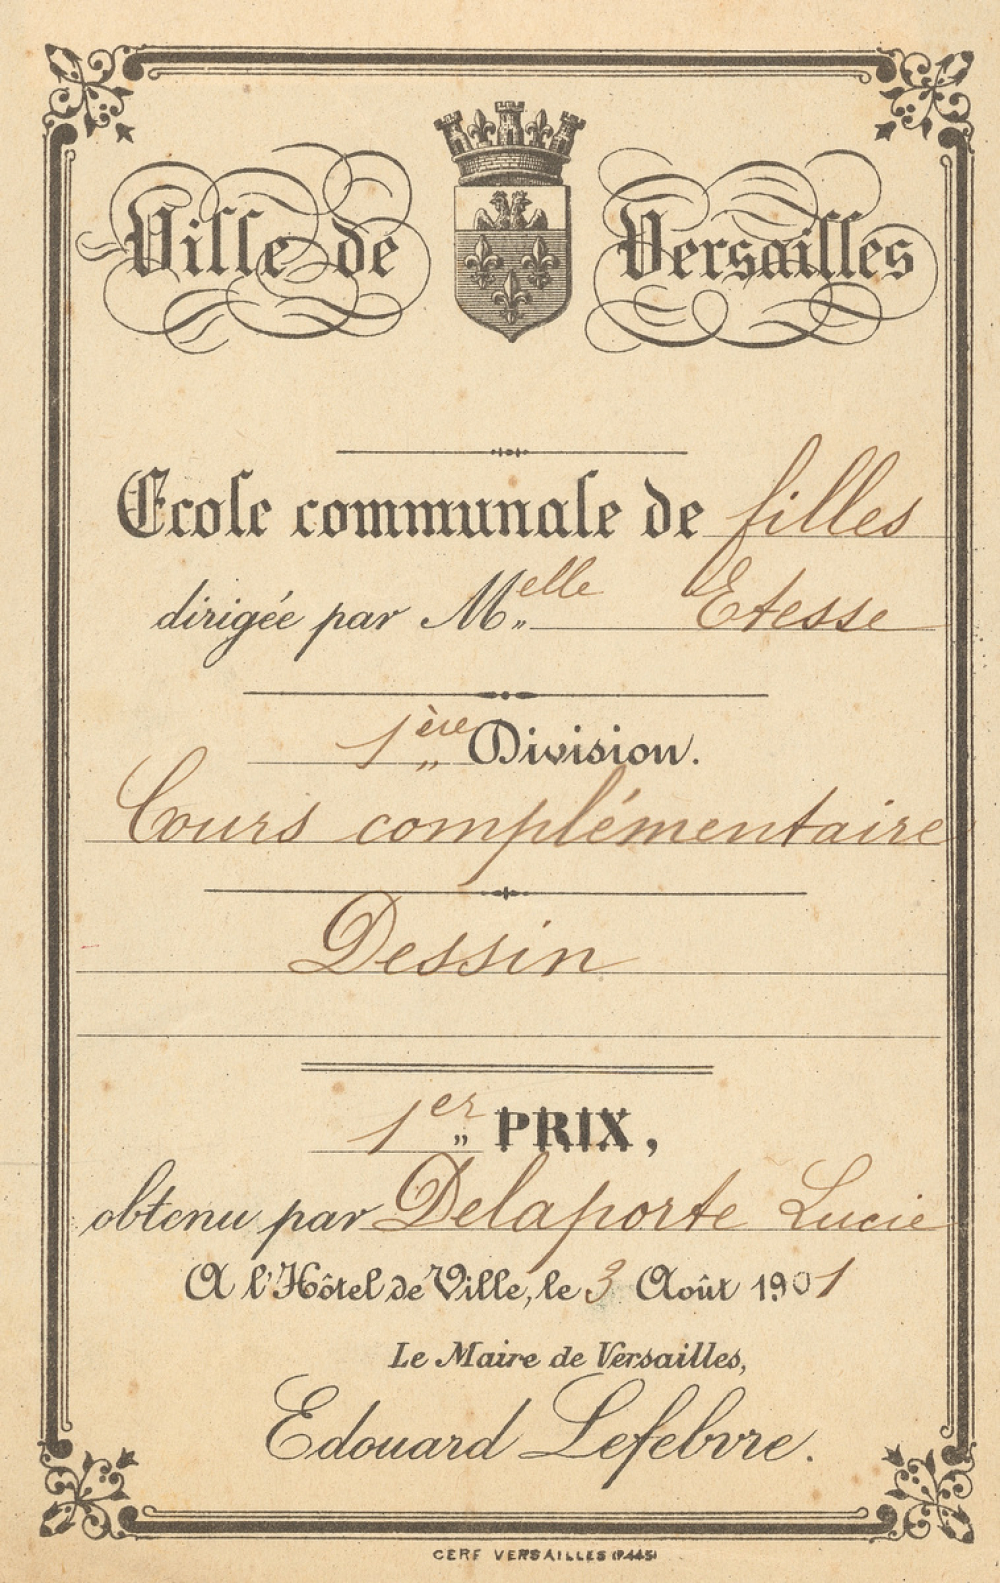 Ville de Versailles
École communale de filles
dirigée par Melle Etesse
1ère Division.
Cours complémentaire
Dessin
1er PRIX,
obtenu par Delaporte Lucie
A l'Hôtel de Ville, le 3 Août 1901
Le Maire de Versailles,
Edouard Lefebvre.
CERF VERSAILLES (P.445)